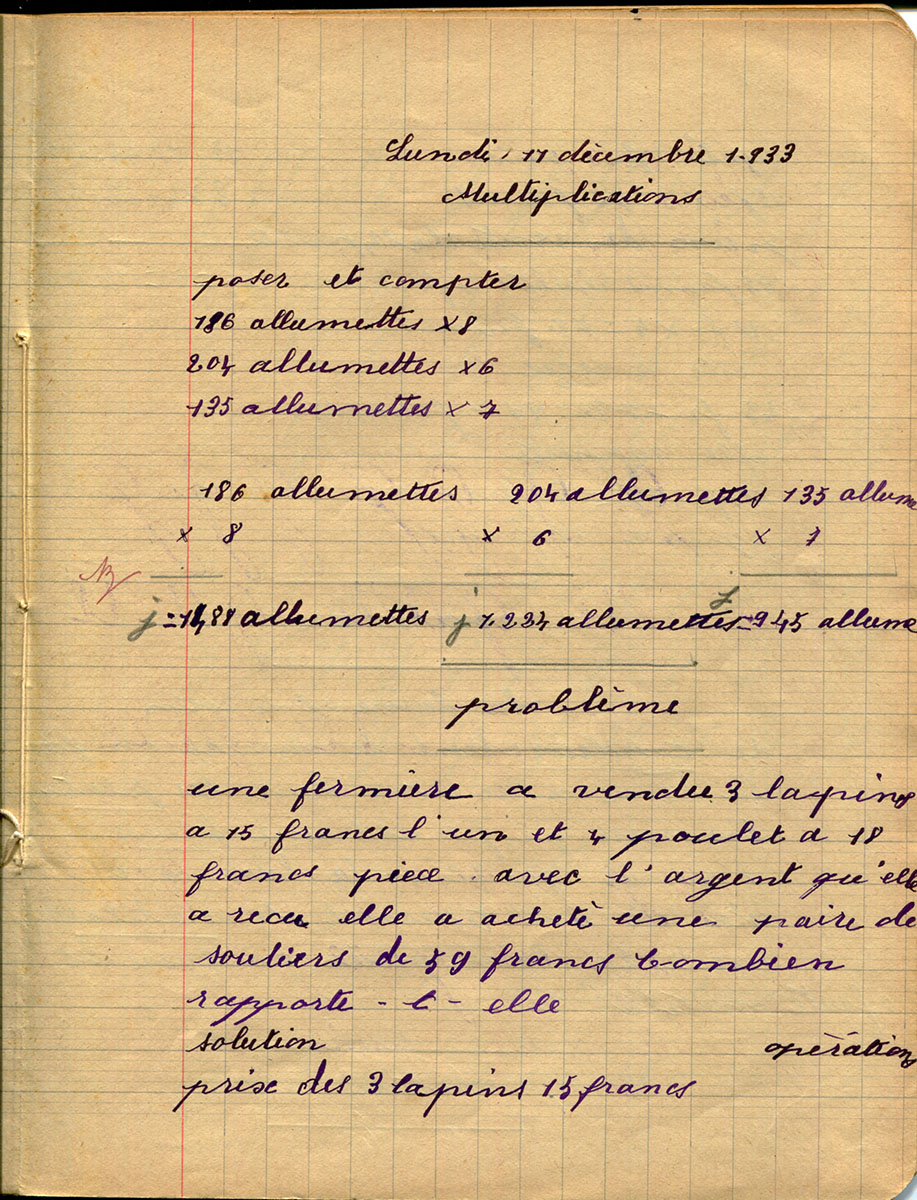 Lundi, 11 décembre 1.933
Multiplications
poser et compter
186 allumettes x8
204 allumettes x6
135 allumettes x 7
186 allumettes 204 allumettes 135 allume
x 8 x 6 x 7
B
j =1488 allumettes j 1.224 allumettes j =945 allume
problème
une fermière a vendu 3 lapins
a 15 francs l'un et 4 poulet a 18
francs piece. avec l'argent qu'elle
a recu elle a acheté une paire de
souliers de 59 francs Combien
rapporte - t - elle
solution opérations
prix des 3 lapins 15 francs